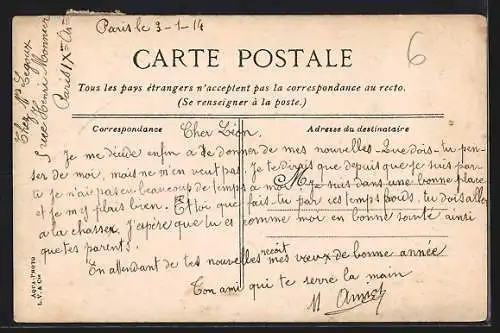 Paris le 3-1-14
6
CARTE POSTALE
Tous les pays étrangers n'acceptent pas la correspondance au recto.
(Se renseigner à la poste.)
Correspondance
Adresse du destinataire
Cher Léon.
Je me décide enfin à te donner de mes nouvelles. Que dois-tu pen-
ser de moi, mais ne m'en veut pas. Je te dirais que depuis que je suis par-
ti je n'ai pas eu beaucoup de temps à moi. Je suis dans une bonne place
et je m'y plais bien. Et toi que fais-tu par ces temps froids, tu dois aller
à la chasse. J'espère que tu es comme moi en bonne santé ainsi
que tes parents.
En attendant de tes nouvelles reçoit mes vœux de bonne année
Ton ami qui te serre la main
Chez Mr
5 rue Henri Monnier
Paris IX
AQUA-PHOTO
L. V. & Cie